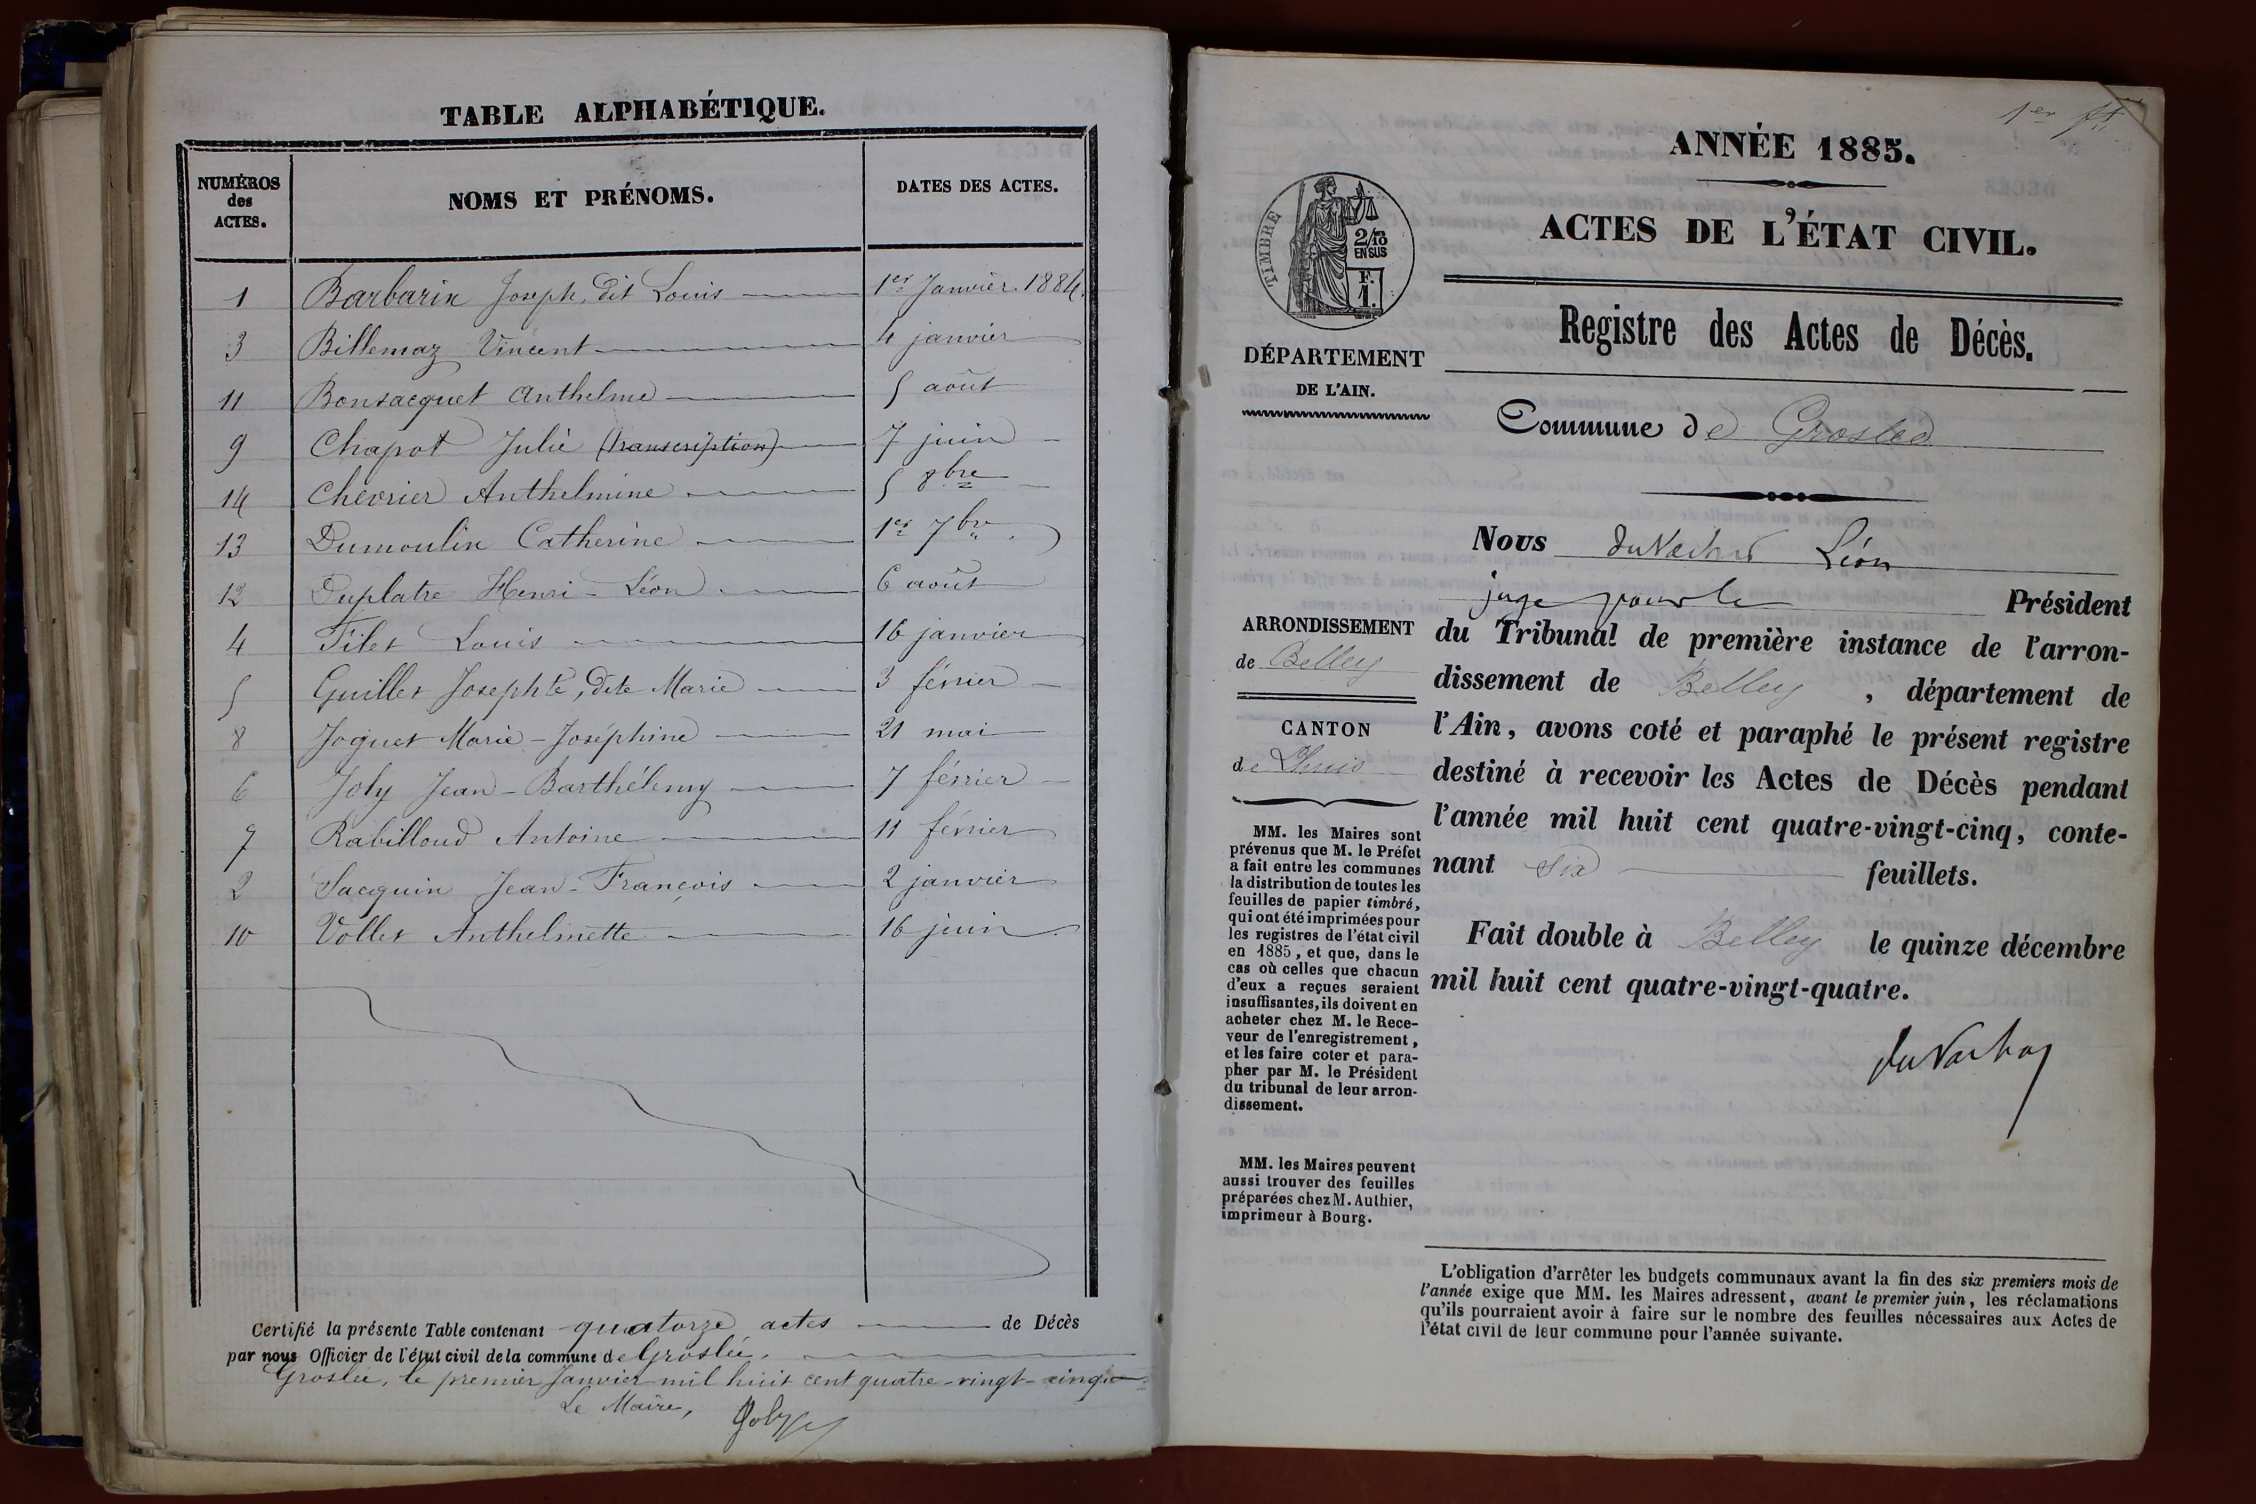 TABLE ALPHABÉTIQUE.
NUMÉROS des ACTES.
NOMS ET PRÉNOMS.
DATES DES ACTES.
1 Barbarin Joseph, dit Louis 1er Janvier 1884.
3 Billemaz Vincent 4 janvier
11 Bonsacquet Anthelme 5 août
9 Chapot Julie (transcription) 7 juin
14 Chevrier Anthelmine 5 8bre
13 Dumoulin Catherine 1er 7bre
12 Duplatre Henri-Léon 6 août
4 Filet Louis 16 janvier
5 Guillet Josephte, dite Marie 3 février
8 Joguet Marie-Joséphine 21 mai
6 Joly Jean-Barthélemy 7 février
7 Rabilloud Antoine 11 février
2 Sacquin Jean-François 2 janvier
10 Vollet Anthelmette 16 juin
Certifié la présente Table contenant quatorze actes de Décès
par nous Officier de l'état civil de la commune de Groslée.
Groslée, le premier Janvier mil huit cent quatre-vingt-cinq
Le Maire, Joly
1er
ANNÉE 1885.
ACTES DE L'ÉTAT CIVIL.
TIMBRE
2/10 EN SUS
F. 1.
Registre des Actes de Décès.
DÉPARTEMENT
DE L'AIN.
Commune de Groslée
Nous Léon
juge pour le Président
du Tribunal de première instance de l'arron-
dissement de Belley, département de
l'Ain, avons coté et paraphé le présent registre
destiné à recevoir les Actes de Décès pendant
l'année mil huit cent quatre-vingt-cinq, conte-
nant six feuillets.
Fait double à Belley le quinze décembre
mil huit cent quatre-vingt-quatre.
ARRONDISSEMENT
de Belley
CANTON
de Lhuis
MM. les Maires sont
prévenus que M. le Préfet
a fait entre les communes
la distribution de toutes les
feuilles de papier timbré,
qui ont été imprimées pour
les registres de l'état civil
en 1885, et que, dans le
cas où celles que chacun
d'eux a reçues seraient
insuffisantes, ils doivent en
acheter chez M. le Rece-
veur de l'enregistrement,
et les faire coter et para-
pher par M. le Président
du tribunal de leur arron-
dissement.
MM. les Maires peuvent
aussi trouver des feuilles
préparées chez M. Authier,
imprimeur à Bourg.
L'obligation d'arrêter les budgets communaux avant la fin des six premiers mois de
l'année exige que MM. les Maires adressent, avant le premier juin, les réclamations
qu'ils pourraient avoir à faire sur le nombre des feuilles nécessaires aux Actes de
l'état civil de leur commune pour l'année suivante.